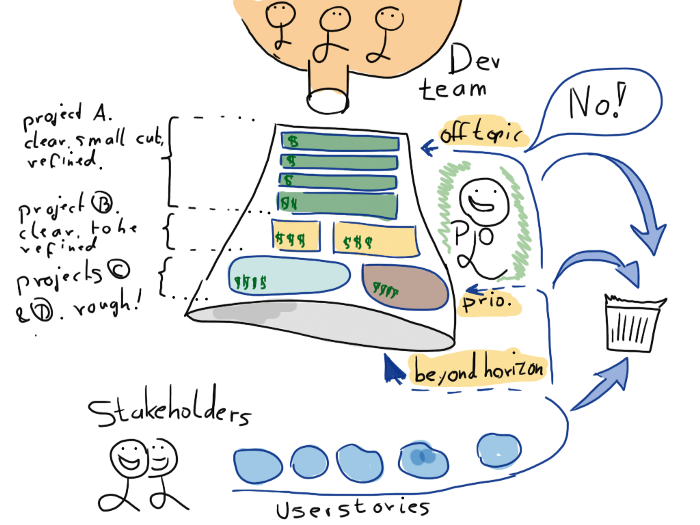 Dev
team
No!
project A.
clear, small cut,
refined.
off topic
$
$
$
$$
project B.
clear, to be
refined
PO
$$$
$$$
projects C
& D. rough!
$$$$
$$$$
prio.
beyond horizon
Stakeholders
Userstories